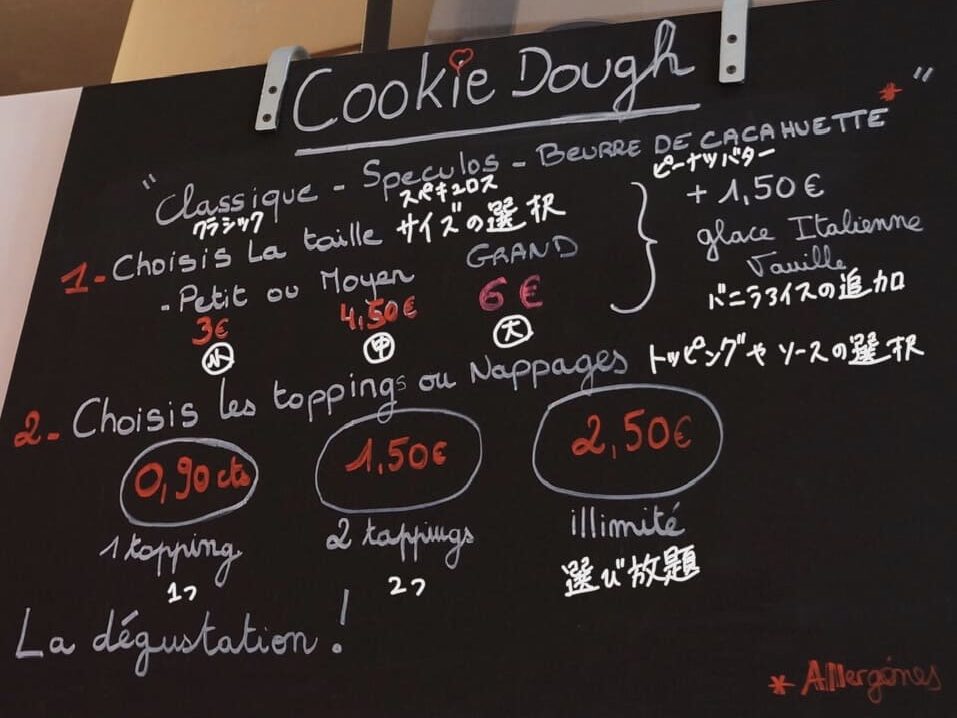 Cookie Dough
" Classique - Speculos - BEURRE DE CACAHUETTE* "
クラシック スペキュロス ピーナツバター
1- Choisis La taille サイズの選択
- Petit ou Moyen GRAND
3€ 4,50€ 6€
小 中 大
+ 1,50€
glace Italienne
Vanille
バニラアイスの追加
2- Choisis les toppings ou Nappages トッピングや ソースの選択
0,90 cts 1,50€ 2,50€
1 topping 2 toppings illimité
1つ 2つ 選び放題
La dégustation !
* Allergènes